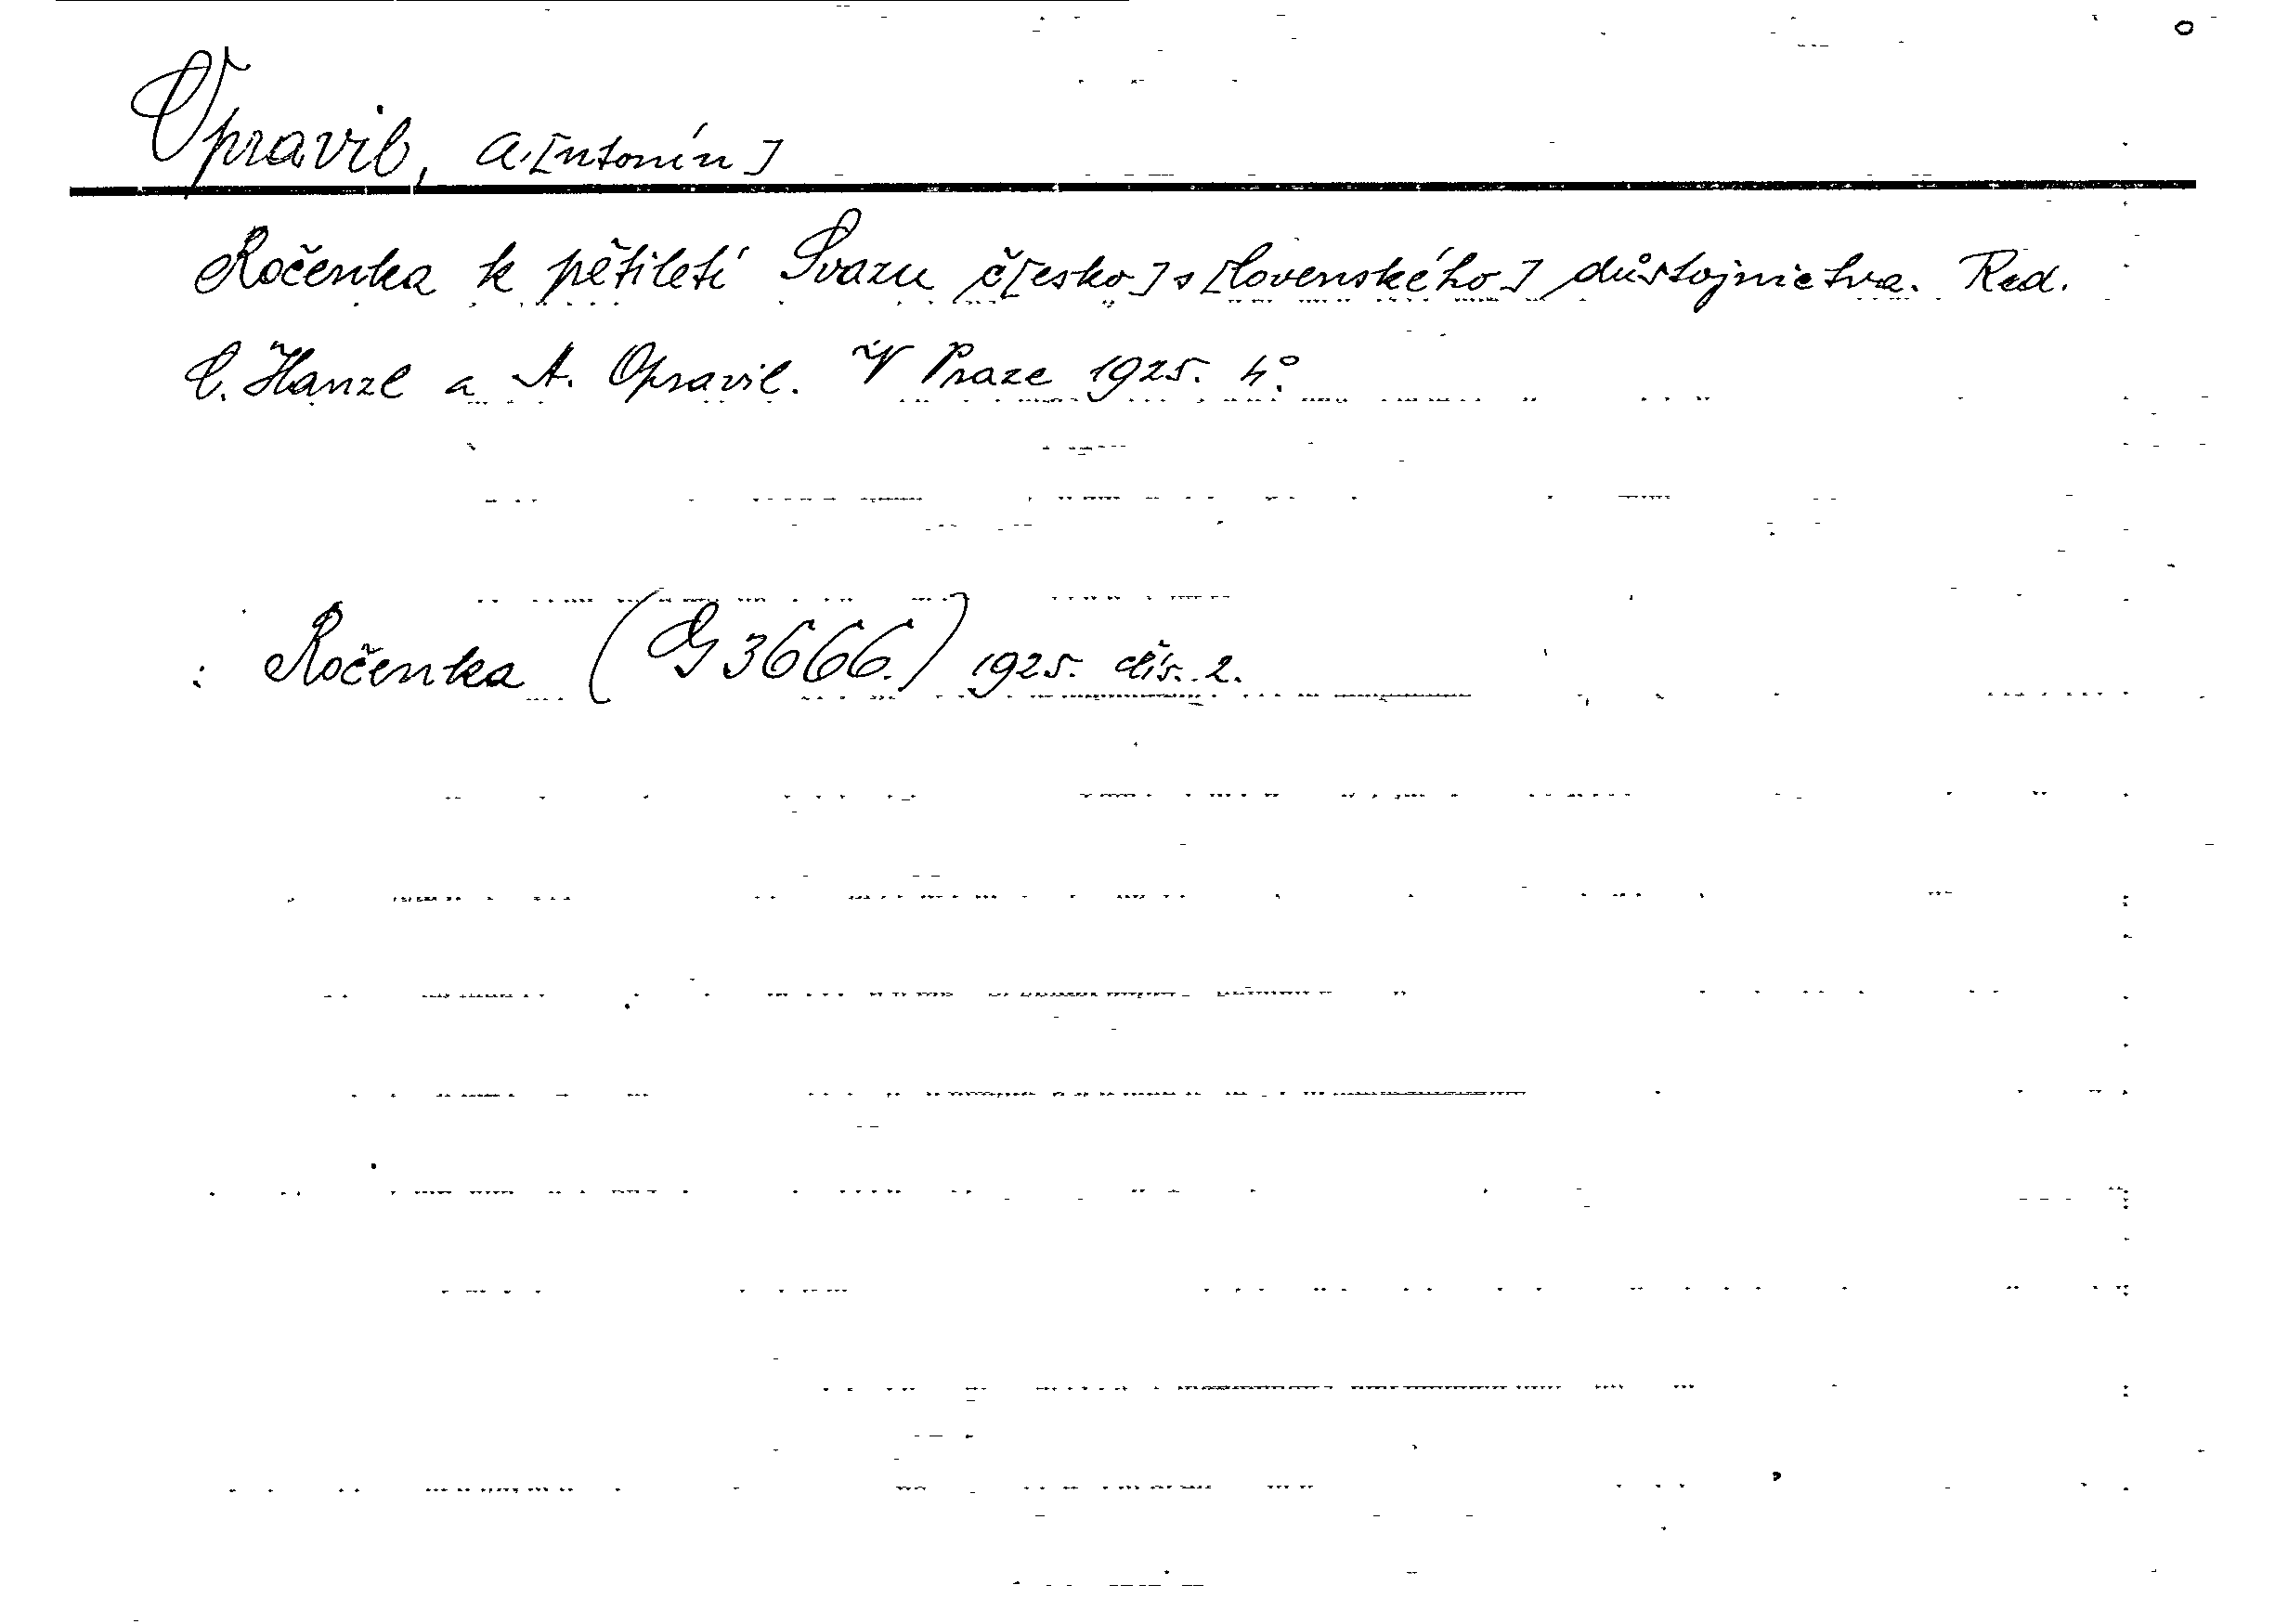 Opravil, A.[ntonín]
Ročenka k pětiletí Svazu č[esko]s[lovenského] důstojnictva. Red.
C. Hanzl a A. Opravil. V Praze 1925. 4°.
: Ročenka (G 3666.) 1925. čís. 2.